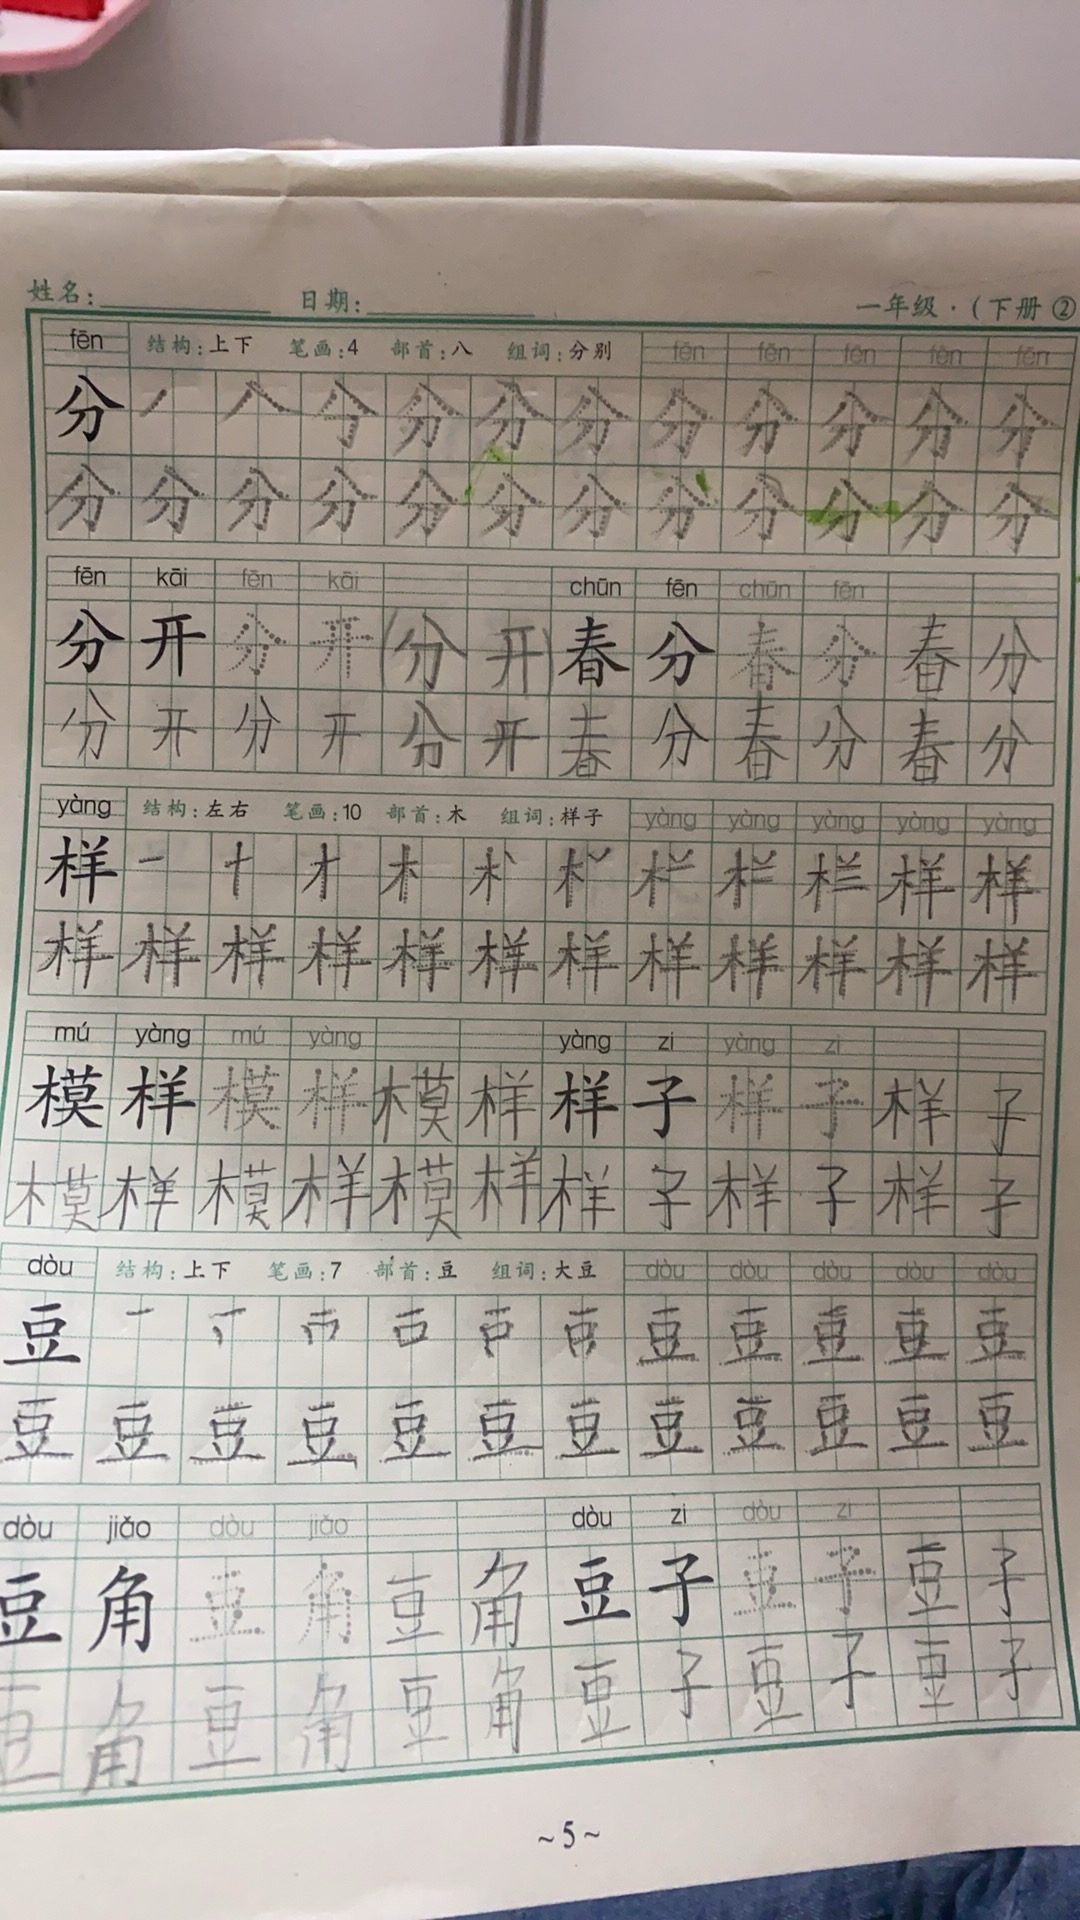 姓名: 日期: 一年级·(下册②
fēn 结构:上下 笔画:4 部首:八 组词:分别 fēn fēn fēn fēn fēn
分 丿 八 分 分 分 分 分 分 分 分
分 分 分 分 分 分 分 分 分 分 分 分
fēn kāi fēn kāi chūn fēn chūn fēn
分 开 分 开 (分 开) 春 分 春 分 春 分
分 开 分 开 分 开 春 分 春 分 春 分
yàng 结构:左右 笔画:10 部首:木 组词:样子 yàng yàng yàng yàng yàng
样 一 十 才 木 样 样
样 样 样 样 样 样 样 样 样 样 样 样
mú yàng mú yàng yàng zi yàng zi
模 样 模 样 模 样 样 子 样 子 样 子
模 样 模 样 模 样 样 子 样 子 样 子
dòu 结构:上下 笔画:7 部首:豆 组词:大豆 dòu dòu dòu dòu dòu
豆 一 豆 豆 豆 豆 豆
豆 豆 豆 豆 豆 豆 豆 豆 豆 豆 豆 豆
dòu jiǎo dòu jiǎo dòu zi dòu zi
豆 角 豆 角 豆 角 豆 子 豆 子 豆 子
豆 角 豆 角 豆 角 豆 子 豆 子 豆 子
~5~